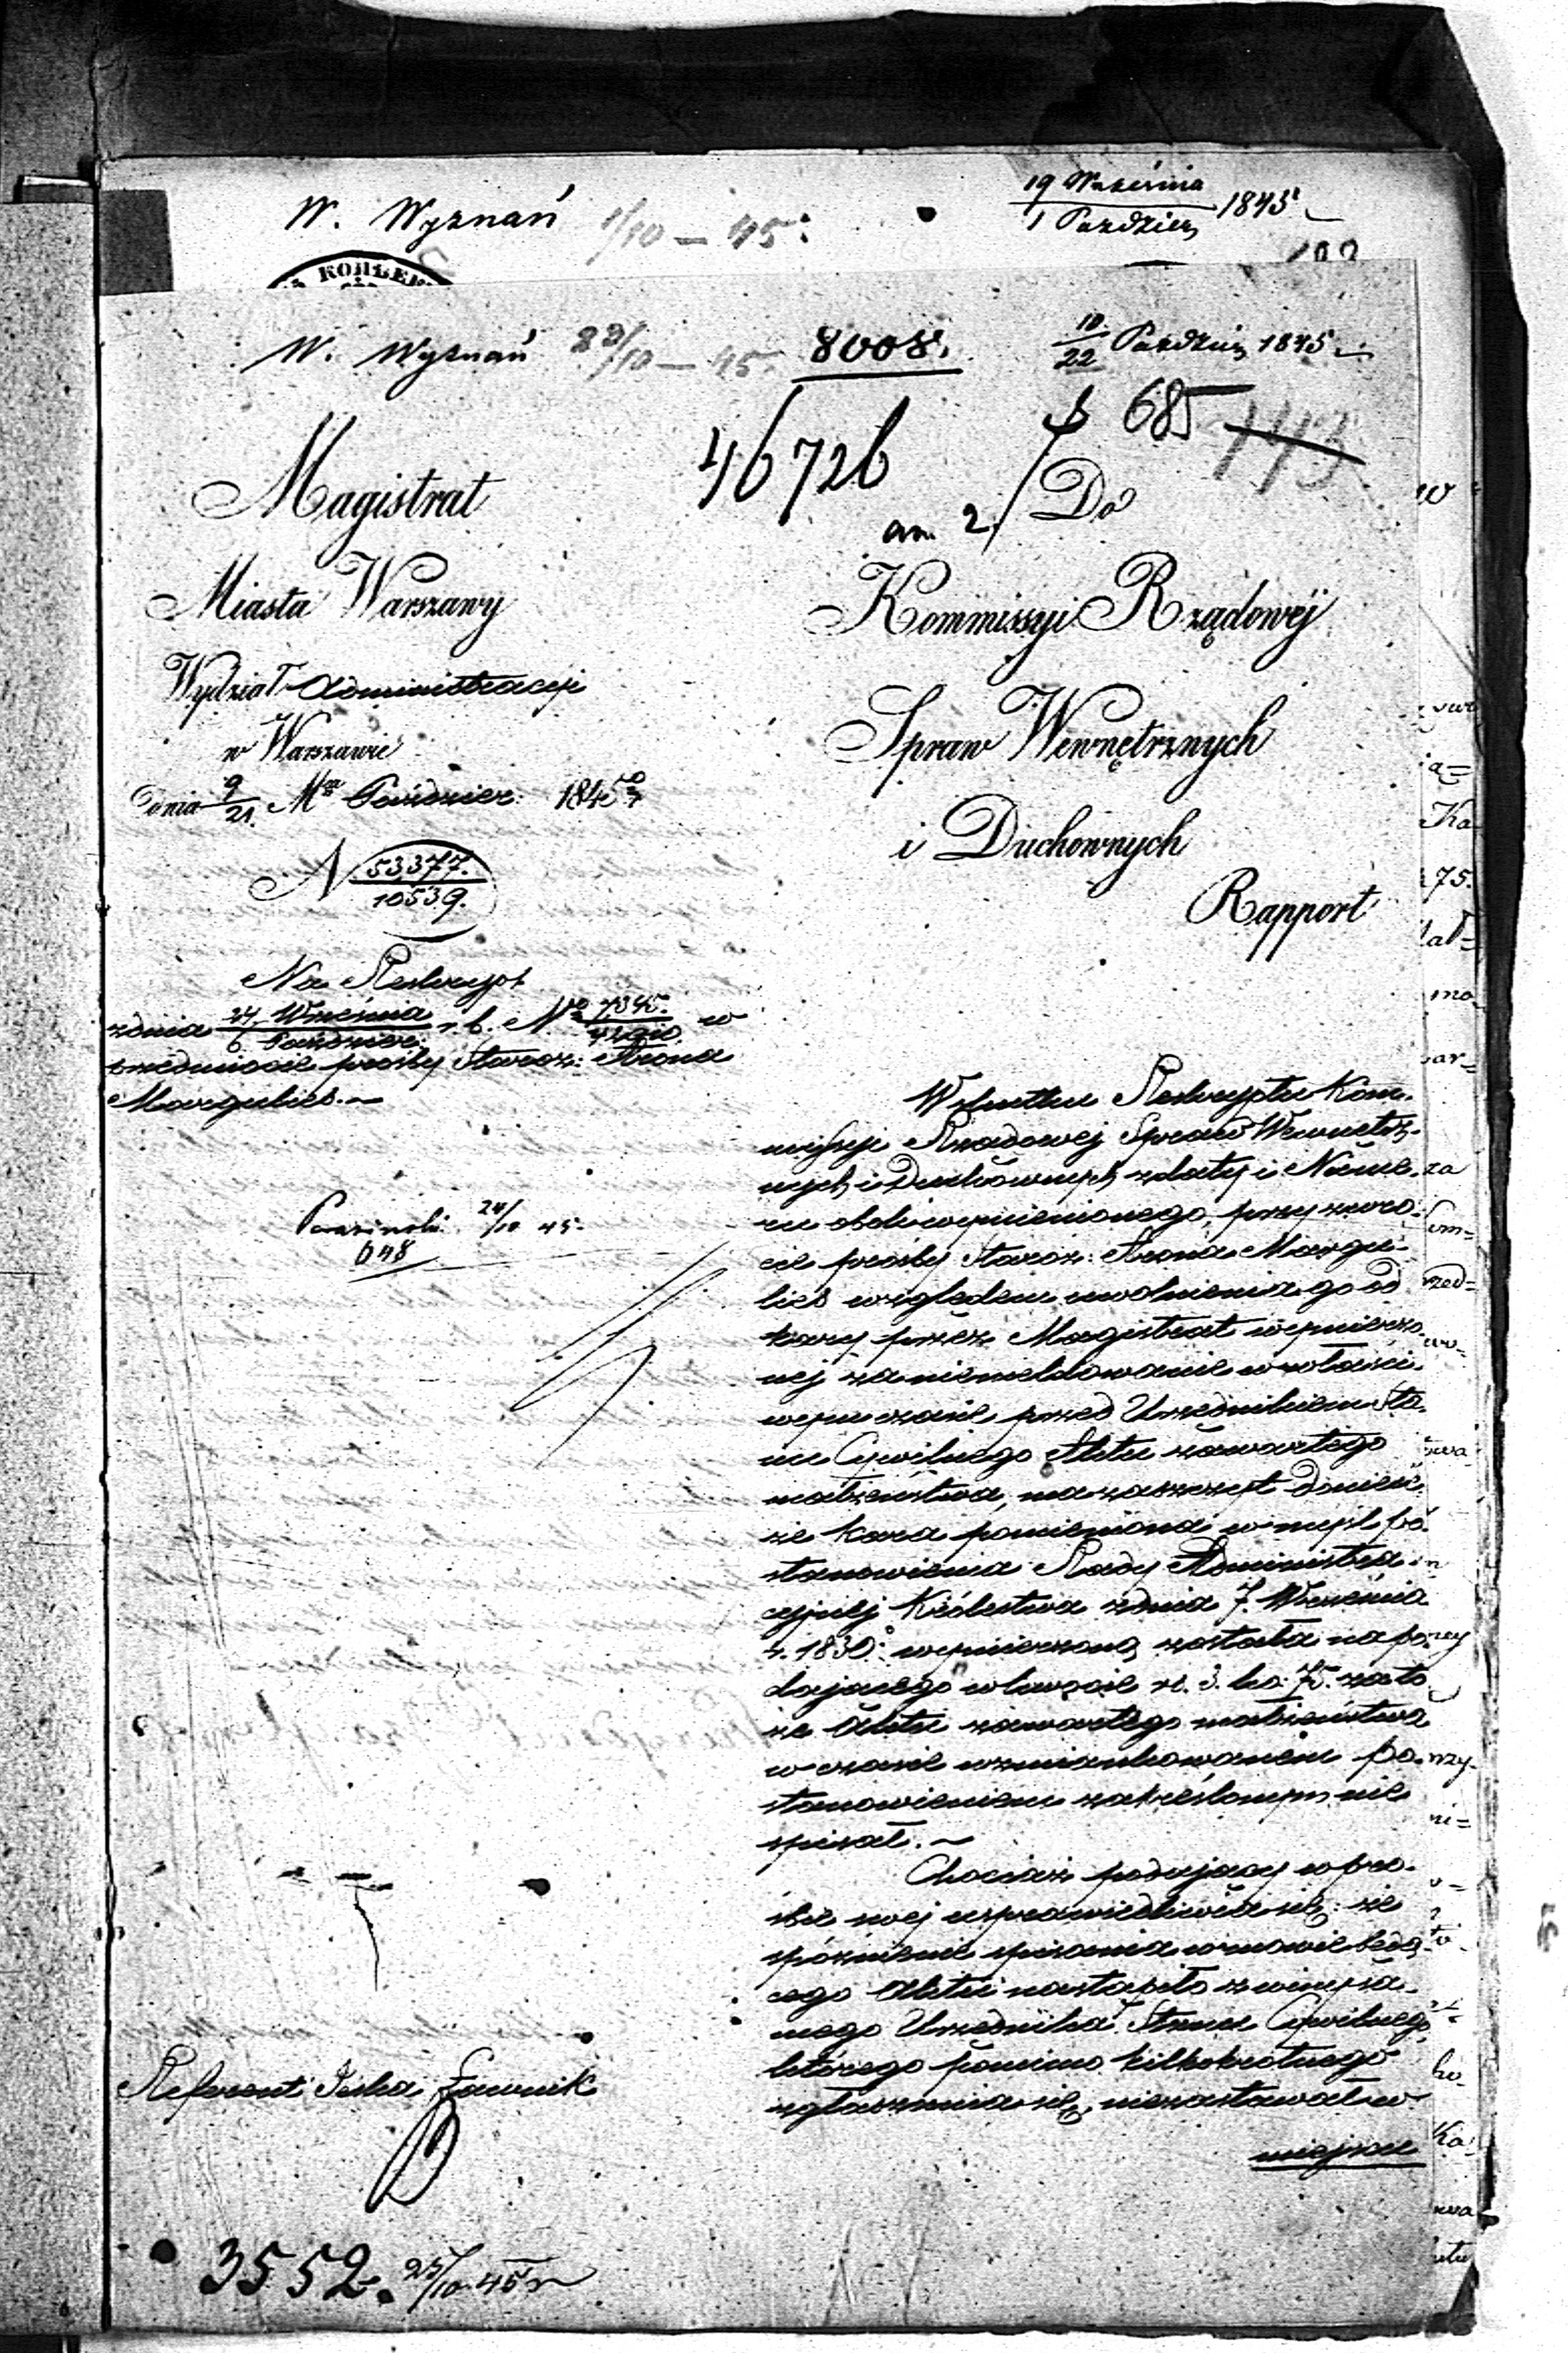 W. Wyznań 1/10 — 45.
19 Września
1 Paździer 1845
KOHLEN
W. Wyznań 23/10 — 45. 8008.
10/22 Paździer 1845
46726
685
143
an. 2.
Magistrat
Miasta Warszawy
Wydział Administracyi
w Warszawie
Dnia 9/21. Mca Paździer: 1845
N 53377.
10539.
Na Reskrypt
z dnia 24. Września
6 Paździer: r. b. No 7345. w
przedmiocie prośby Staroz: Arona
Margulies.~
24/10 45.
648
Do
Kommissyi Rządowéj
Spraw Wewnętrznych
i Duchownych
Rapport
W skutku Reskryptu Kom-
missyi Rządowej Spraw Wewnętrz-
nych i Duchownych z daty i Nume-
ru obok wymienionego, przy zwro-
cie prośby Staroz: Arona Margu-
lies względem uwolnienia go od
kary przez Magistrat wymierzo-
nej za niemeldowanie w właści-
wym czasie przed Urzędnikiem Sta-
nu Cywilnego Aktu zawartego
małżeństwa, ma zaszczyt donieść
że kara pomieniona w myśl po-
stanowienia Rady Administra-
cyjnej Królestwa z dnia 7. Września
r. 1830. wymierzona została na po-
dającego w kwocie rs. 3. ko. 75. za to
że Aktu zawartego małżeństwa
w czasie wzmiankowanem po-
stanowieniem zakreślonym nie
spisał.~
Chociaż podający w proś-
bie swej usprawiedliwia się: że
spóźnienie spisania w mowie będą-
cego Aktu nastąpiło z winy sa-
mego Urzędnika Stanu Cywilnego,
którego pomimo kilkokrotnego
zgłaszania się, niezastawał w
miejscu
Referent Ławnik
3552. 25/10 45